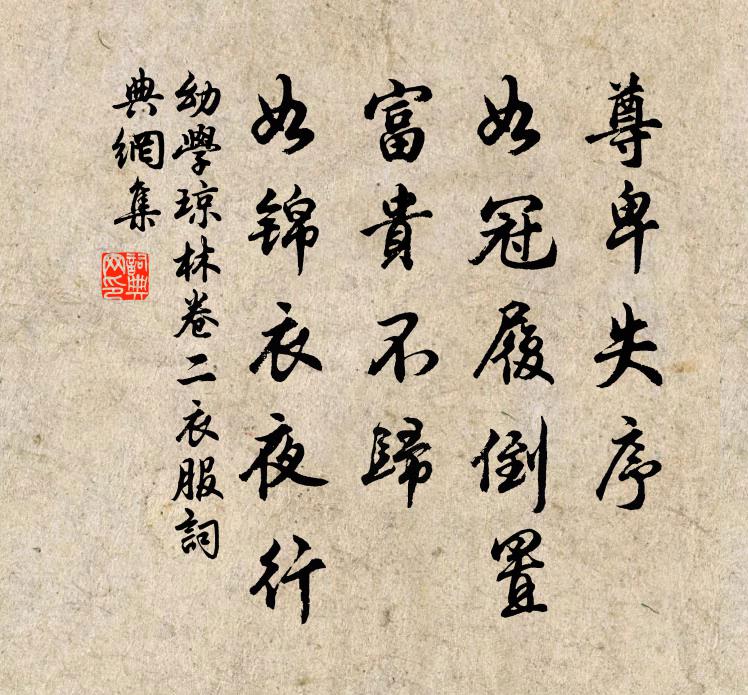 尊卑失序
如冠履倒置
富貴不歸
如锦衣夜行
幼學琼林卷二衣服詞
典網集
詞典
网印